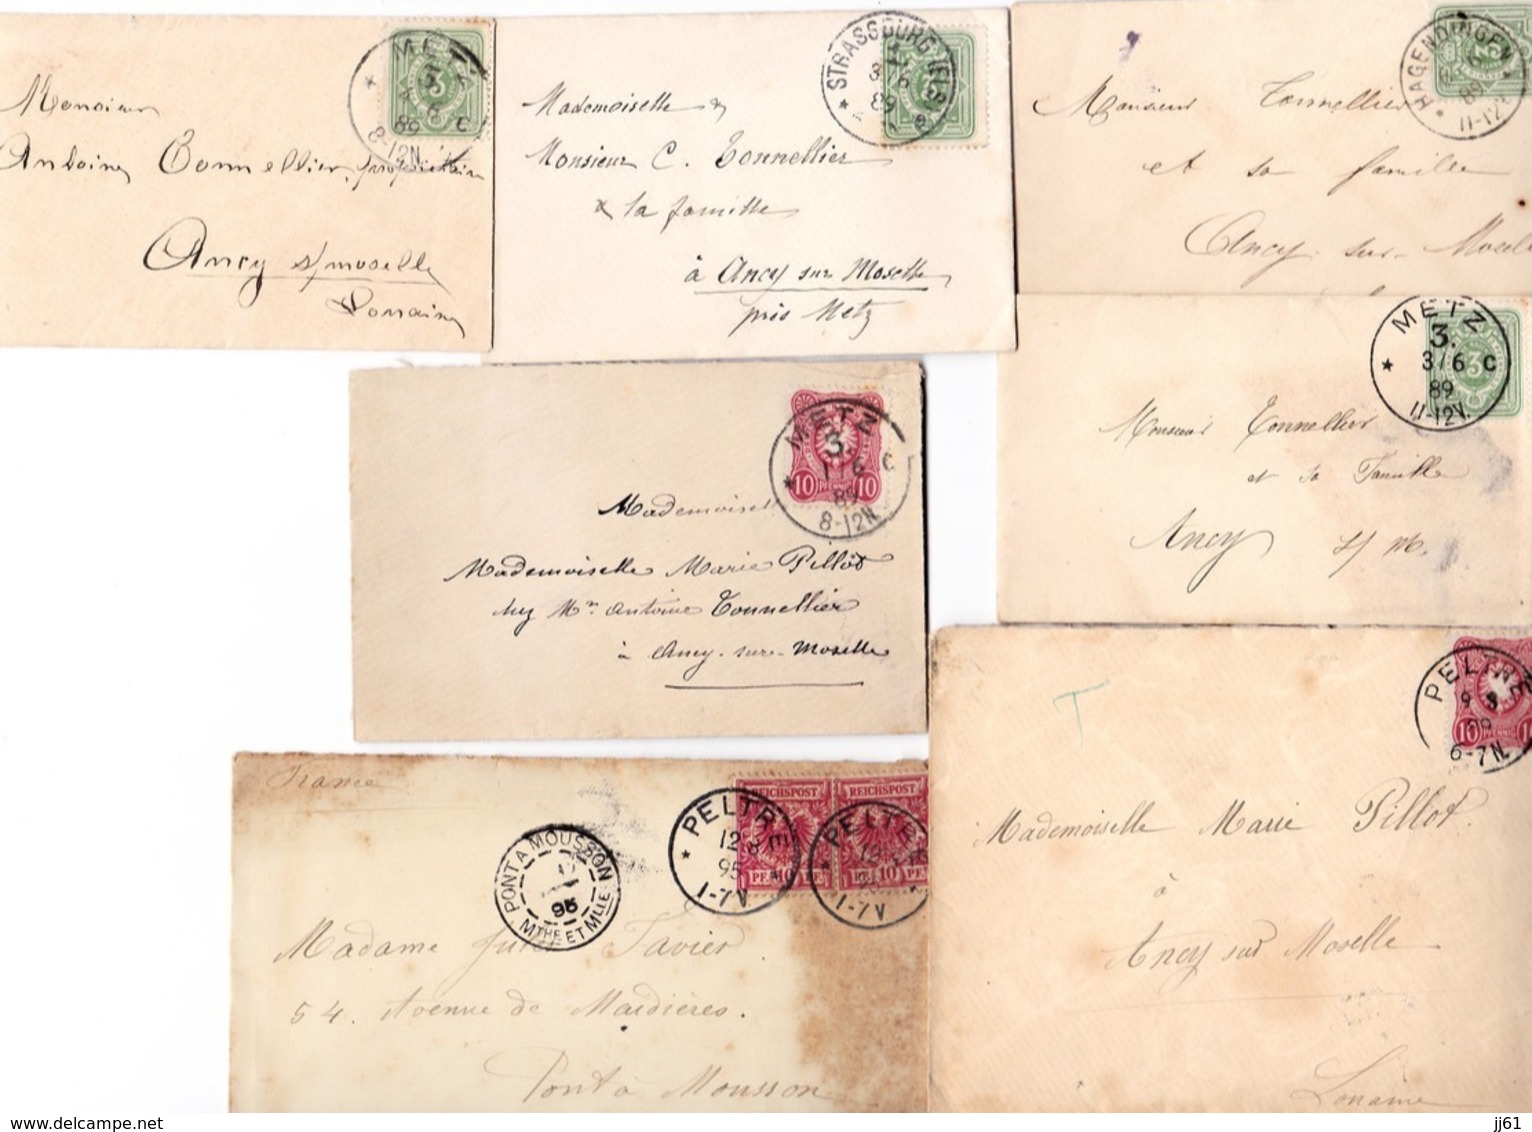 METZ
89 C
8-12N.
3
Monsieur
Antoine Tonnellier, propriétaire
Ancy s/moselle
Lorraine
STRASSBURG (ELS)
3/6
89
Mademoiselle &
Monsieur C. Tonnellier
& la famille
à Ancy sur Moselle
près Metz
HAGENDINGEN
89
11-12V
Monsieur Tonnellier
et sa famille
Ancy-sur-Moselle
METZ
3.
3/6 C
89
11-12V.
3
Monsieur Tonnellier
et sa Famille
Ancy s/m.
METZ
3.
1/6 C
89
8-12N.
10 PFENNIG 10
Mademoisel
Mademoiselle Marie Pillot
chez Mr. Antoine Tonnellier
à Ancy-sur-Moselle
PELTRE
9 8
89
6-7N.
10 PFENNIG
T
Mademoiselle Marie Pillot
à
Ancy sur Moselle
Lorraine
France
REICHSPOST REICHSPOST
PELTR
12 8
95
1-7V
PF 10 PF
PELTRE
12
1-7V
10 PF
PONT A MOUSSON
95
MTHE ET MLLE
Madame Jules Tavier
54. Avenue de Maidières.
Pont à Mousson
jj61
www.delcampe.net